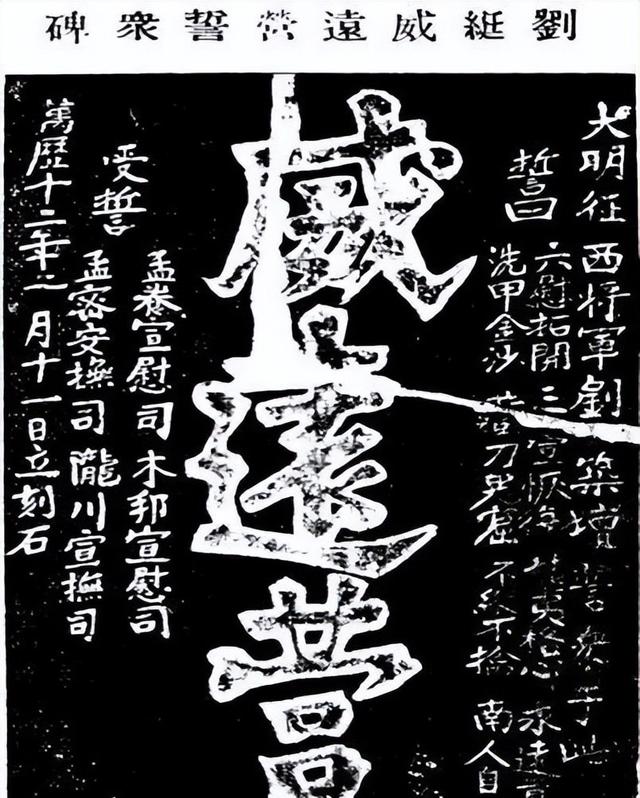 劉綎威遠營誓眾碑
大明征西将軍劉築壇誓衆于此
誓曰
六慰拓開 三宣恢復 夷格心 永遠
洗甲金沙 刀鬼窟 不縱不擒 南人自
威遠营
受誓
孟養宣慰司 木邦宣慰司
孟密安撫司 隴川宣撫司
萬歷十二年二月十一日立刻石